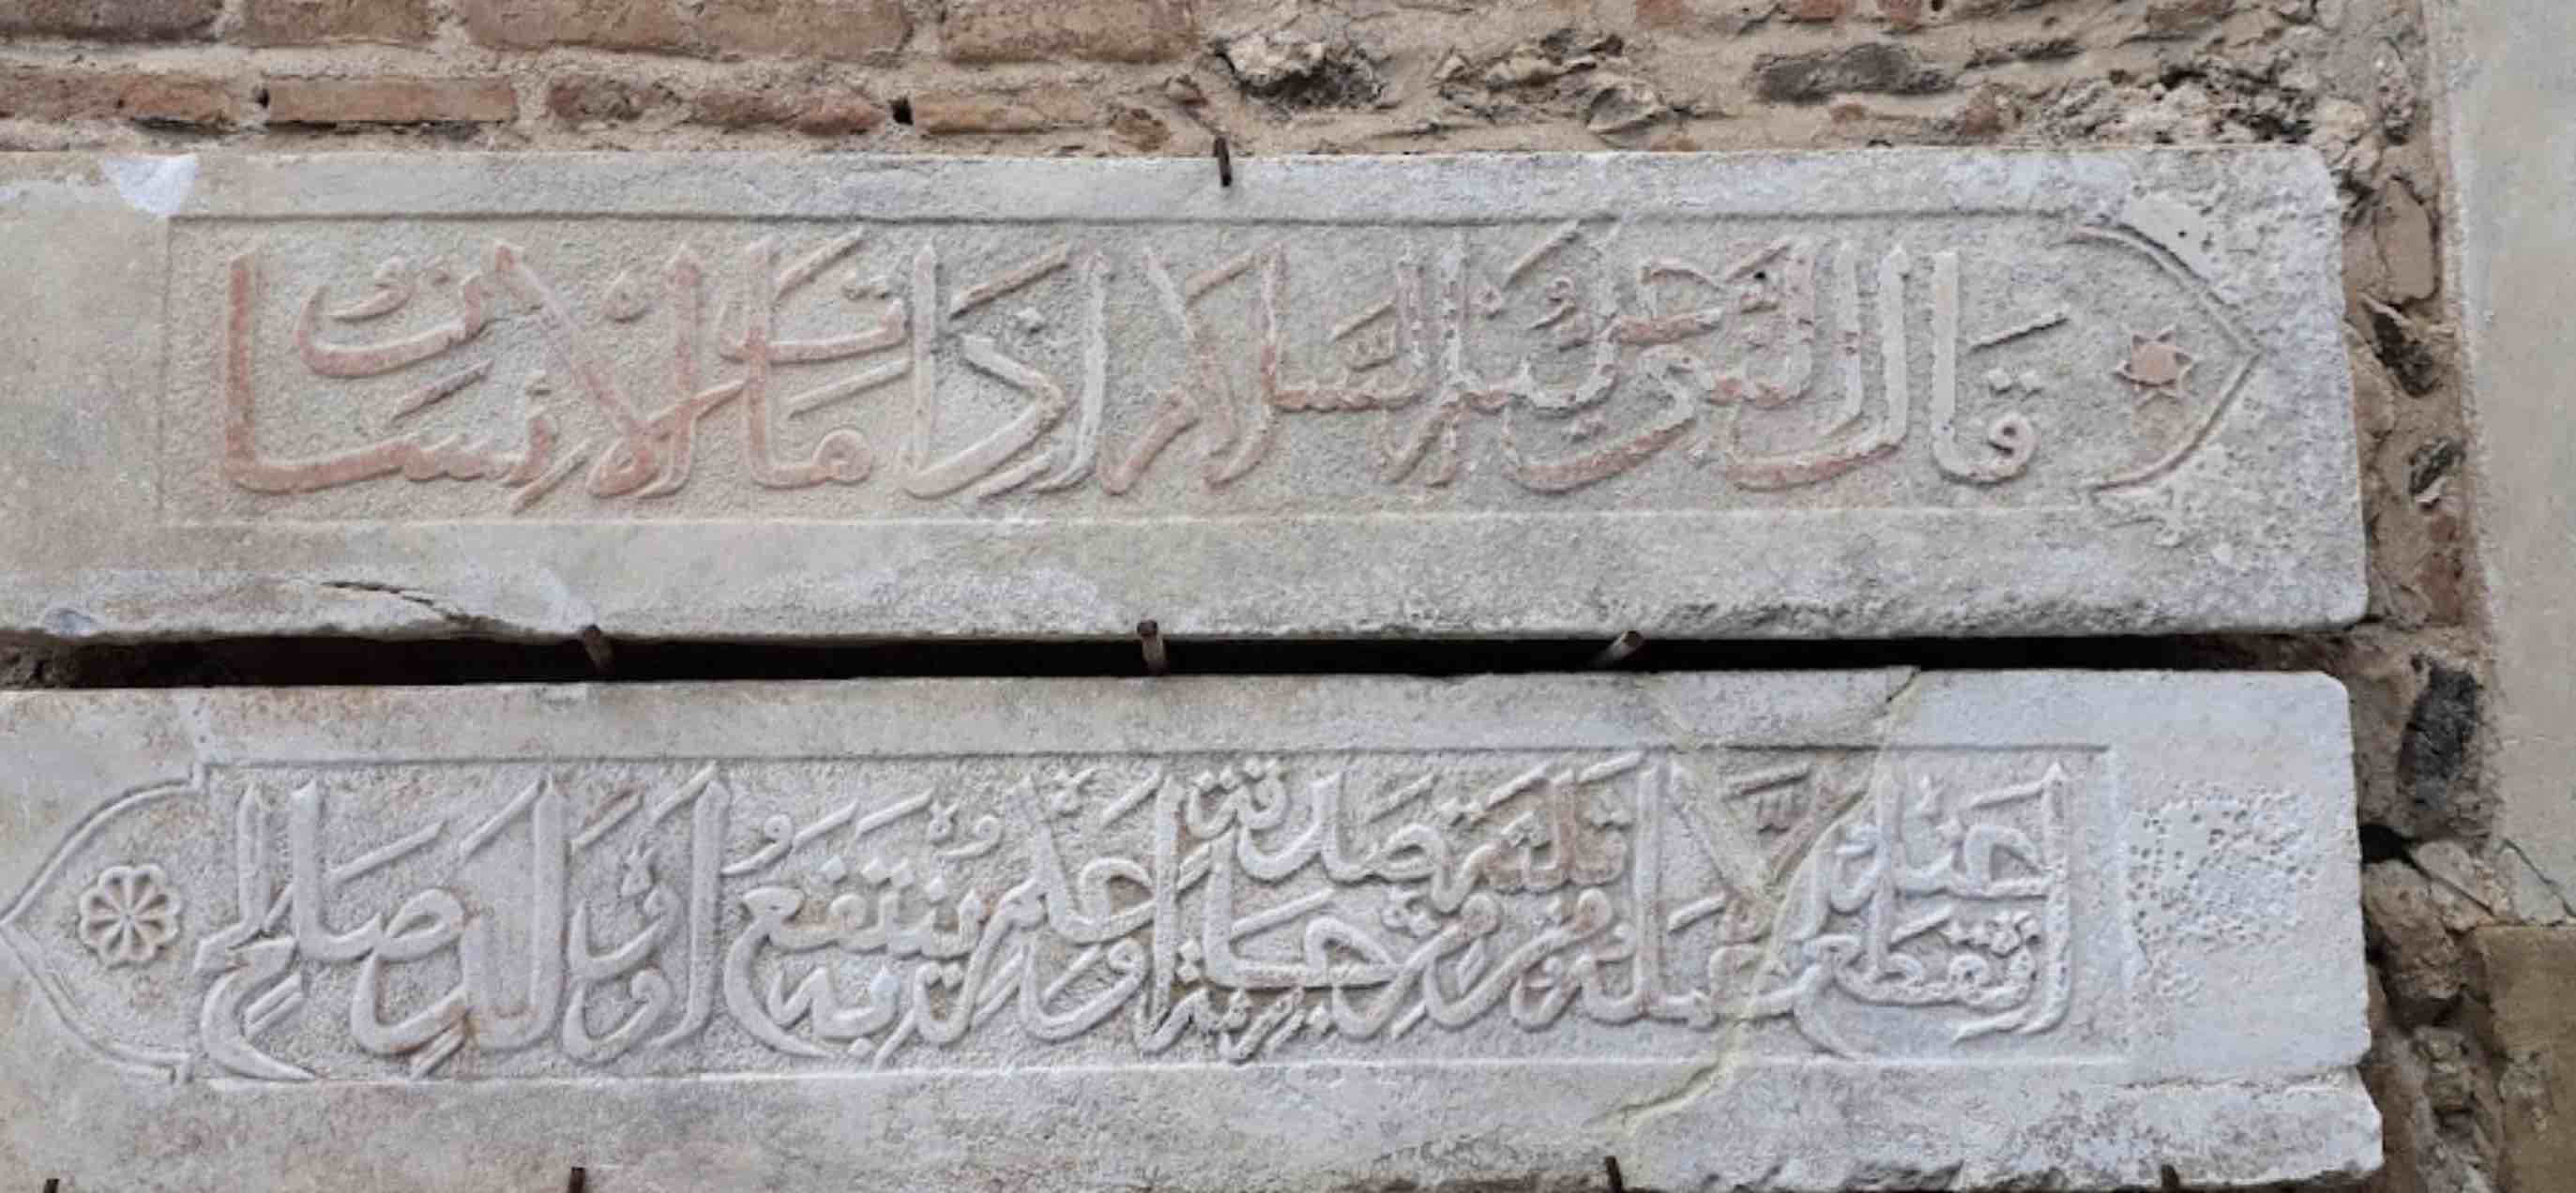 قال النبي عليه السلام اذا مات الانسان
انقطع عنه عمله الا من ثلثة صدقة جارية او علم ينتفع به او ولد صالح